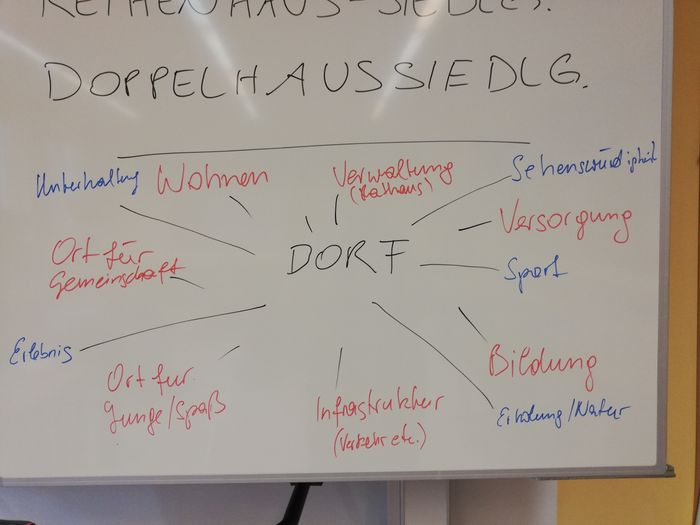 REIHENHAUS-SIEDLG.
DOPPELHAUSSIEDLG.
Unterhaltung
Wohnen
Verwaltung
(Rathaus)
Sehenswürdigkeit
Versorgung
Ort für
Gemeinschaft
DORF
Sport
Erlebnis
Bildung
Ort für
Junge/Spaß
Infrastruktur
(Verkehr etc.)
Erholung/Natur